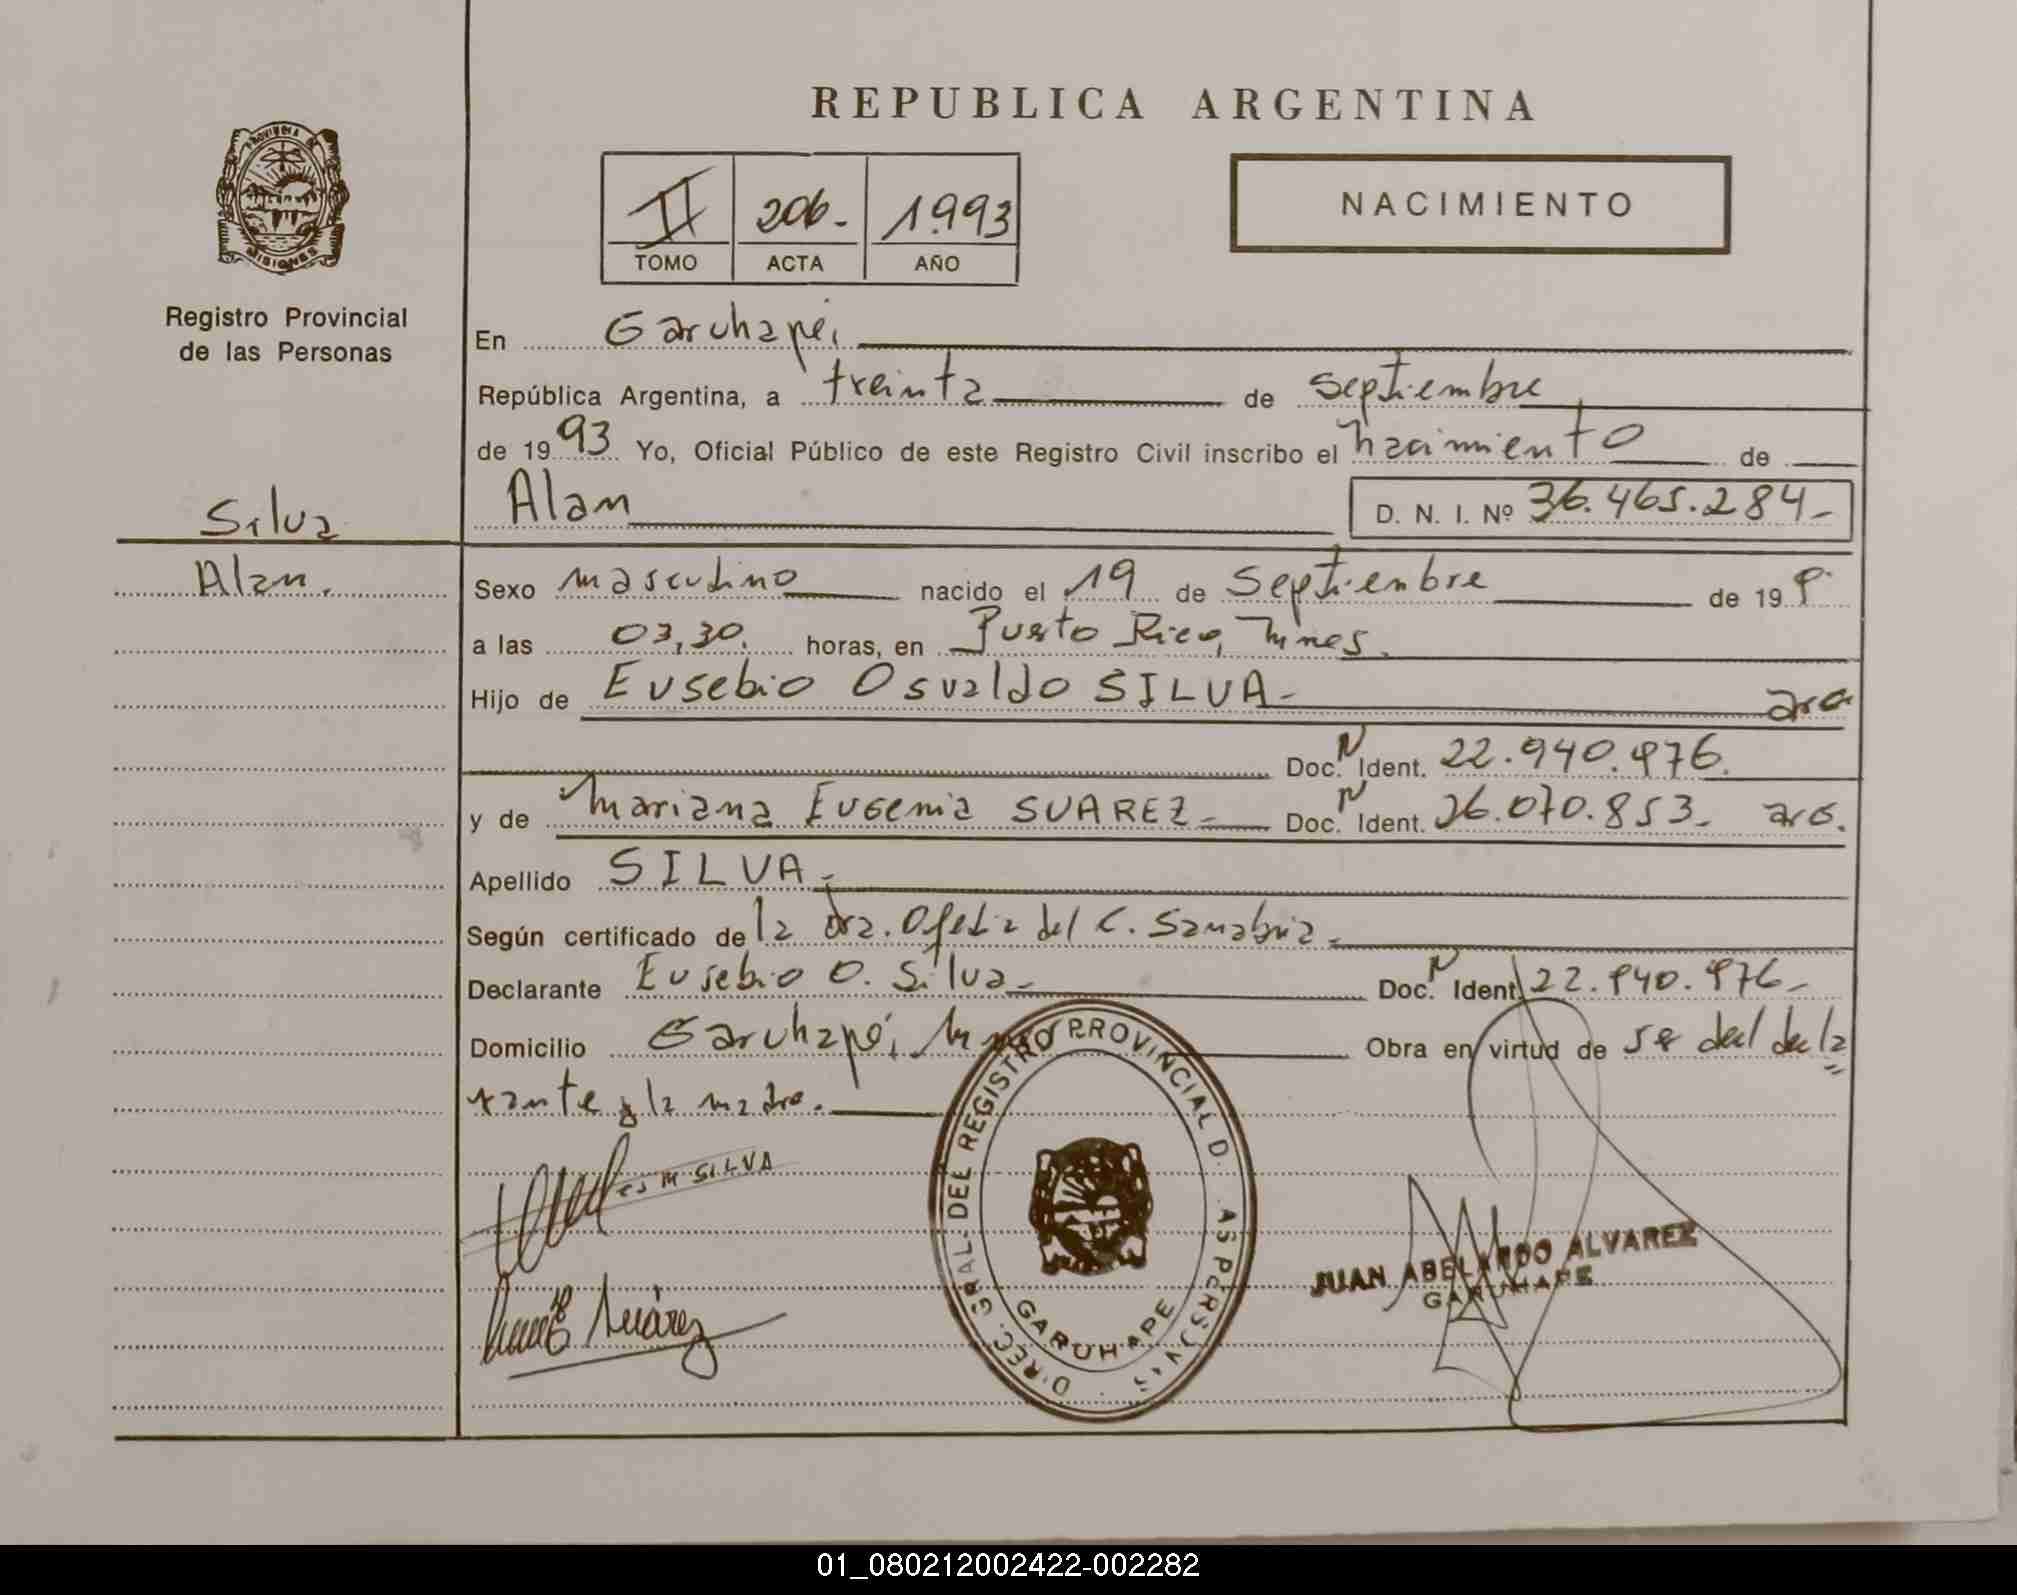 REPUBLICA ARGENTINA
PROVINCIA DE
MISIONES
Registro Provincial
de las Personas
II 206- 1.993
TOMO ACTA AÑO
NACIMIENTO
En Garuhapé,
República Argentina, a treinta de septiembre
de 1993 Yo, Oficial Público de este Registro Civil inscribo el nacimiento de
Alan D. N. I. Nº 36.465.284-
Silva
Alan.
Sexo masculino nacido el 19 de septiembre de 19
a las 03,30. horas, en Puerto Rico, Mnes.
Hijo de Eusebio Osvaldo SILVA- arg
Doc. N Ident. 22.940.976.
y de Mariana Eugenia SUAREZ- Doc. N Ident. 26.070.853- arg.
Apellido SILVA-
Según certificado de la Dra. Ofelia del C. Sanabria-
Declarante Eusebio O. Silva- Doc. N Ident. 22.940.976-
Domicilio Garuhapé, Obra en virtud de ser del decla
rante y la madre.
SILVA
Suárez
DIREC. GRAL. DEL REGISTRO PROVINCIAL D. LAS PERSONAS
GARUHAPE
JUAN ABELARDO ALVAREZ
GARUHAPE
01_080212002422-002282